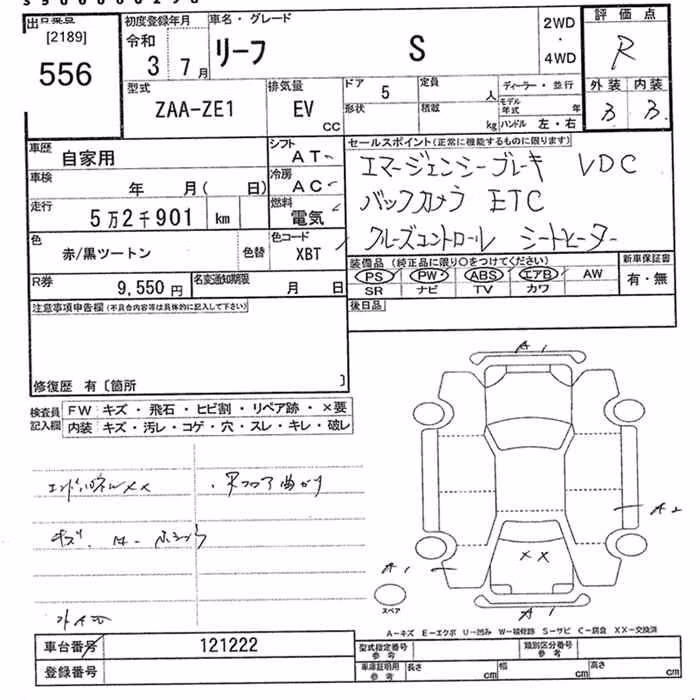 出品票
[2189]
556
初度登録年月
令和
3 7月
車名・グレード
リーフ S
2WD
・
4WD
評価点
R
外装 内装
B B
型式
ZAA-ZE1
排気量
EV
CC
ドア 5
定員
人
ディーラー・並行
形状
積載
kg
モデル年式 年
ハンドル 左・右
車歴
自家用
シフト
AT
車検
年 月( 日)
冷房
AC
走行
5万2千901 km
燃料
電気
色
赤/黒ツートン
色替
色コード
XBT
R券
9,550円
名変通知期限
月 日
セールスポイント(正常に機能するものに限ります)
エマージェンシーブレーキ VDC
バックカメラ ETC
クルーズコントロール シートヒーター
装備品(純正品に限り○をつけてください)
PS PW ABS エアB AW
SR ナビ TV カワ
新車保証書
有・無
後日品
注意事項申告欄(不具合内容等は具体的に記入して下さい)
修復歴 有〔箇所 〕
検査員記入欄
FW キズ・飛石・ヒビ割・リペア跡・×要
内装 キズ・汚レ・コゲ・穴・スレ・キレ・破レ
エンドパネルXX
・Rフロア曲がり
キズ、
A1
A2
XX
A1
A1
スペア
A-キズ E-エクボ U-凹み W-補修跡 S-サビ C-腐食 XX-交換済
車台番号
121222
登録番号
型式指定番号
参考
類別区分番号
参考
車庫証明用
参考
長さ cm
幅 cm
高さ cm